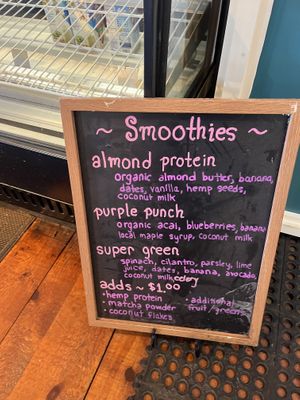 ~ Smoothies ~
almond protein
organic almond butter, banana,
dates, vanilla, hemp seeds,
coconut milk
purple punch
organic acai, blueberries, banana
local maple syrup, coconut milk
super green
spinach, cilantro, parsley, lime
juice, dates, banana, avocado,
coconut milk, celery
adds ~ $1.00
• hemp protein
• matcha powder
• coconut flakes
• additional
fruit/greens